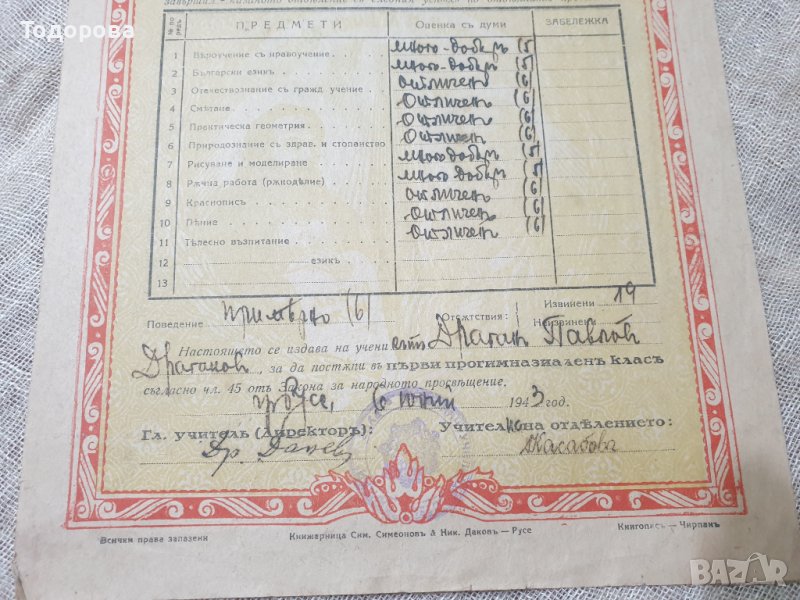 Тодорова
завършил
№ по редъ ПРЕДМЕТИ Оценка съ думи ЗАБЕЛЕЖКА
1 Вѣроучение съ нравоучение много-добъръ (5
2 Български езикъ много-добъръ (5
3 Отечествознание съ гражд. учение отличенъ (6
4 Смѣтане отличенъ (6
5 Практическа геометрия отличенъ (6
6 Природознание съ здрав. и стопанство отличенъ (6
7 Рисуване и моделиране много добъръ (5
8 Ржчна работа (ржкодѣлие) много добъръ (5
9 Краснописъ отличенъ (6
10 Пѣние отличенъ (6
11 Тѣлесно възпитание отличенъ (6
12 езикъ
13
Поведение примѣрно (6) Отсѫтствия: Извинени 19
Неизвинени
Настоящето се издава на учени Драганъ Павловъ
Драгановъ, за да постѫпи въ първи прогимназиаленъ класъ
съгласно чл. 45 отъ Закона за народното просвѣщение.
гр. Русе, 6 юни 1943 год.
Гл. учитель (Директоръ): Учителката на отдѣлението:
Др. Касабова
Всички права запазени Книжарница Сим. Симеоновъ & Ник. Даковъ — Русе Книгопись — Чирпанъ
BAZAR